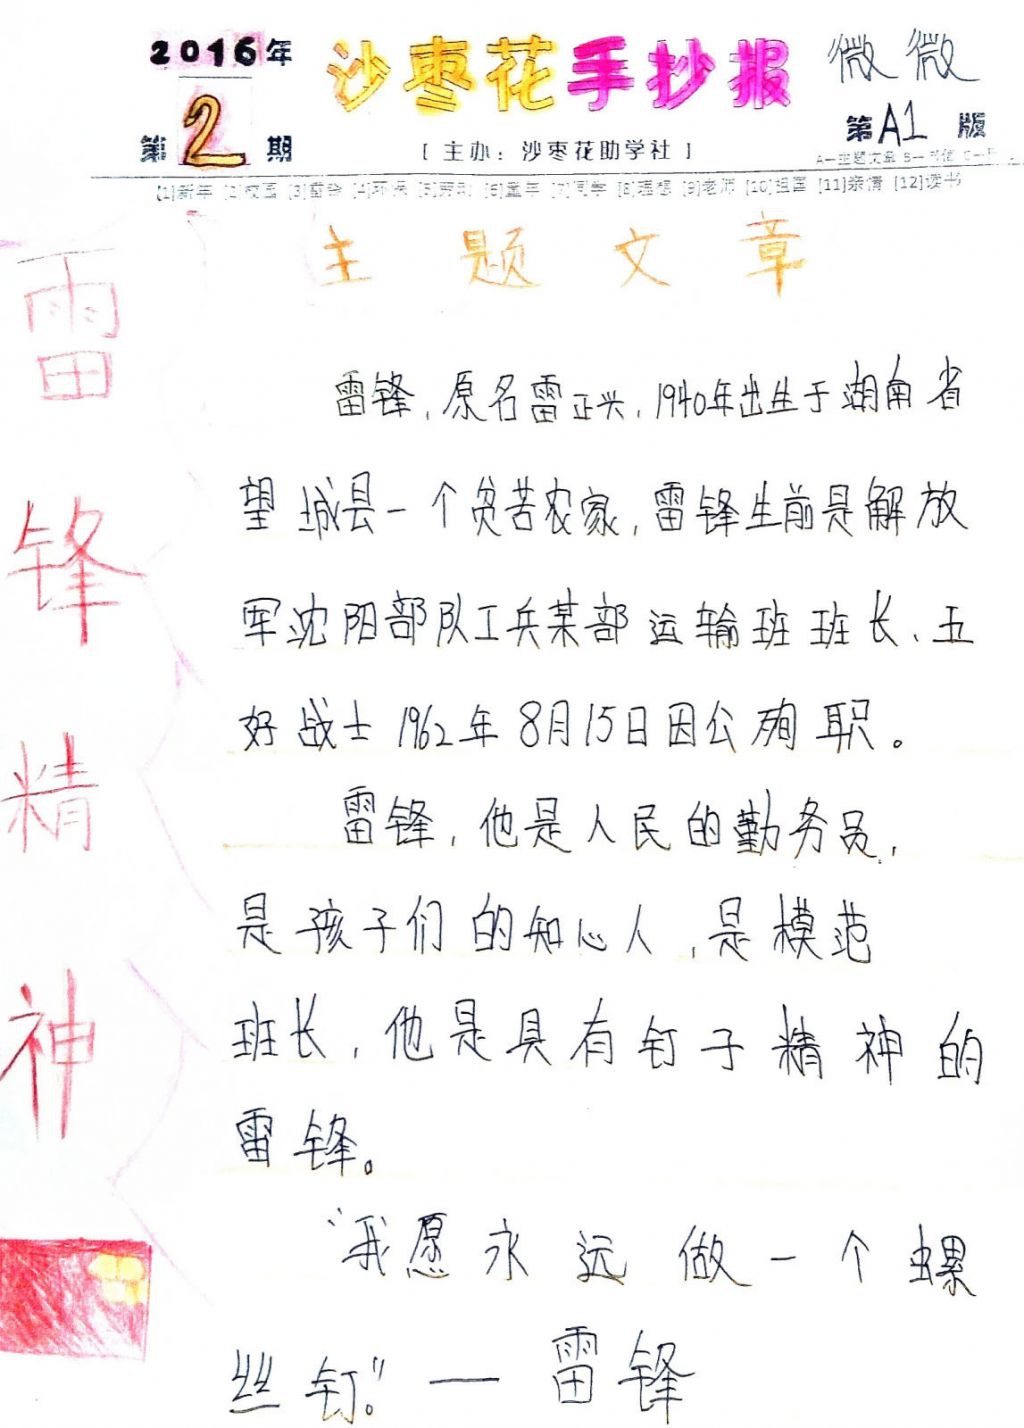 2016年
沙枣花手抄报
微微
第2期
第A1版
[ 主办：沙枣花助学社 ]
[1]新年 [2]校园 [3]雷锋 [4]环保 [5]劳动 [6]童年 [7]同学 [8]理想 [9]老师 [10]祖国 [11]亲情 [12]读书
主题文章
雷锋精神
雷锋，原名雷正兴，1940年出生于湖南省
望城县一个贫苦农家，雷锋生前是解放
军沈阳部队工兵某部运输班班长、五
好战士1962年8月15日因公殉职。
雷锋，他是人民的勤务员，
是孩子们的知心人，是模范
班长，他是具有钉子精神的
雷锋。
“我愿永远做一个螺
丝钉。”——雷锋